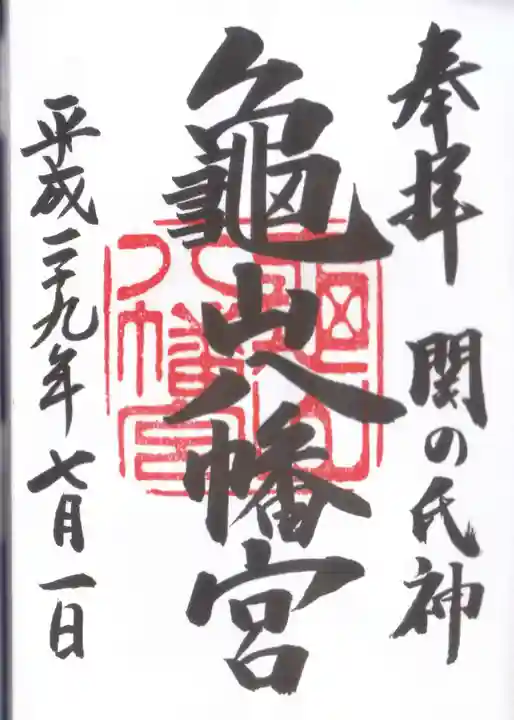 奉拝 関の氏神
龜山八幡宮
平成二十九年七月一日